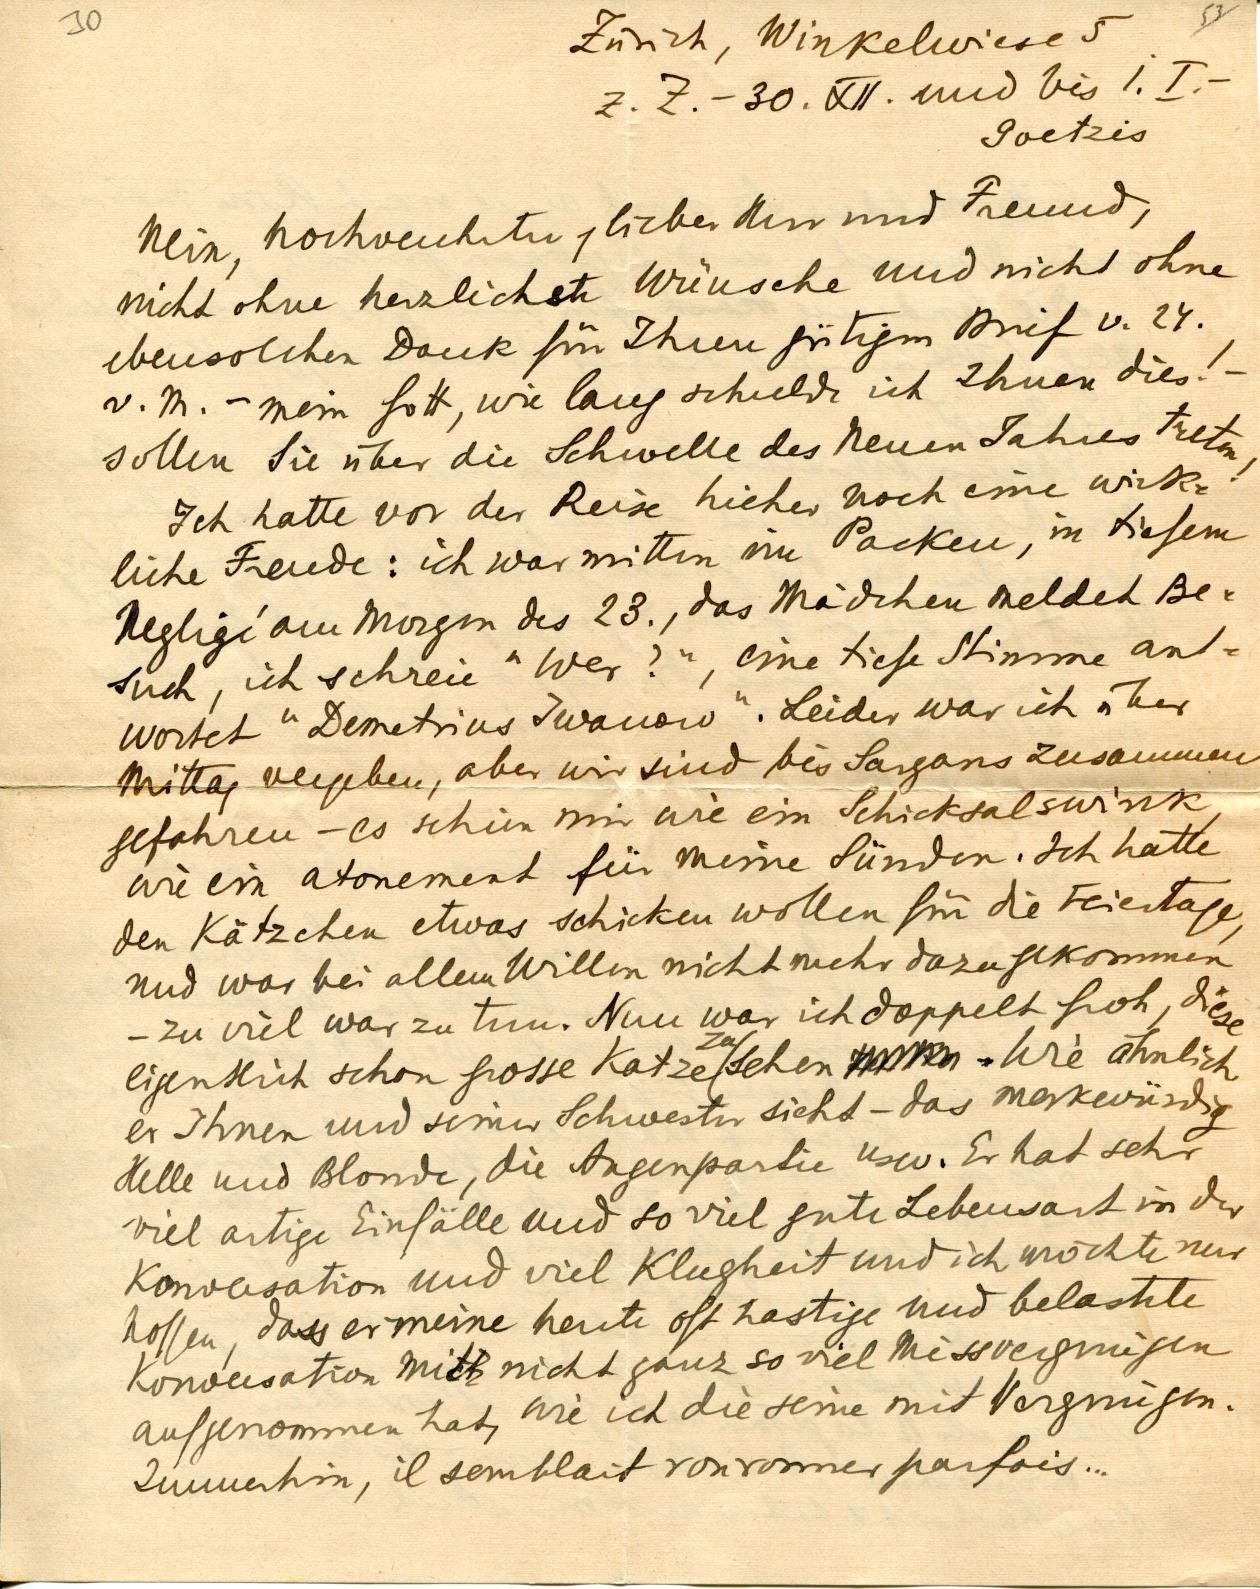 30
53
Zürich, Winkelwiese 5
z. Z. – 30. XII. und bis 1. I. –
Goetzis
Nein, hochverehrter, lieber Herr und Freund,
nicht ohne herzlichste Wünsche und nicht ohne
ebensolchen Dank für Ihren gütigen Brief v. 24.
v. M. – mein Gott, wie lang schulde ich Ihnen dies! –
sollen Sie über die Schwelle des Neuen Jahres treten!
Ich hatte vor der Reise hieher noch eine wirk=
liche Freude: ich war mitten im Packen, in tiefem
Negligé am Morgen des 23., das Mädchen meldet Be=
such, ich schreie "Wer?", eine tiefe Stimme ant=
wortet "Demetrius Iwanow". Leider war ich über
Mittag vergeben, aber wir sind bis Sargans zusammen
gefahren – es schien mir wie ein Schicksalswink,
wie ein atonement für meine Sünden. Ich hatte
den Kätzchen etwas schicken wollen für die Feiertage,
und war bei allem Willen nicht mehr dazu gekommen
– zu viel war zu tun. Nun war ich doppelt froh, diese
eigentlich schon grosse Katze zu sehen. Wie ähnlich
er Ihnen und seiner Schwester sieht – das merkwürdig
Helle und Blonde, die Augenpartie usw. Er hat sehr
viel artige Einfälle und so viel gute Lebensart in der
Konversation und viel Klugheit und ich möchte nur
hoffen, dass er meine heute oft hastige und belastete
Konversation mit nicht ganz so viel Missvergnügen
aufgenommen hat, wie ich die seine mit Vergnügen.
Immerhin, il semblait ronronner parfois...